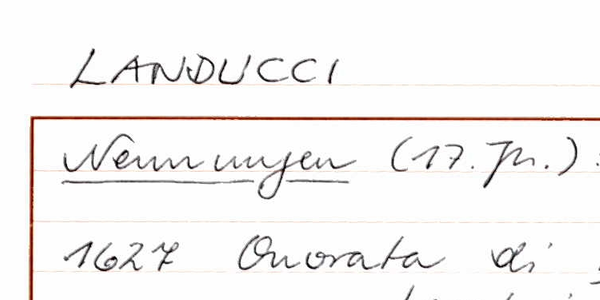 LANDUCCI
Nennungen (17. Jh.):
1627 Onorata di